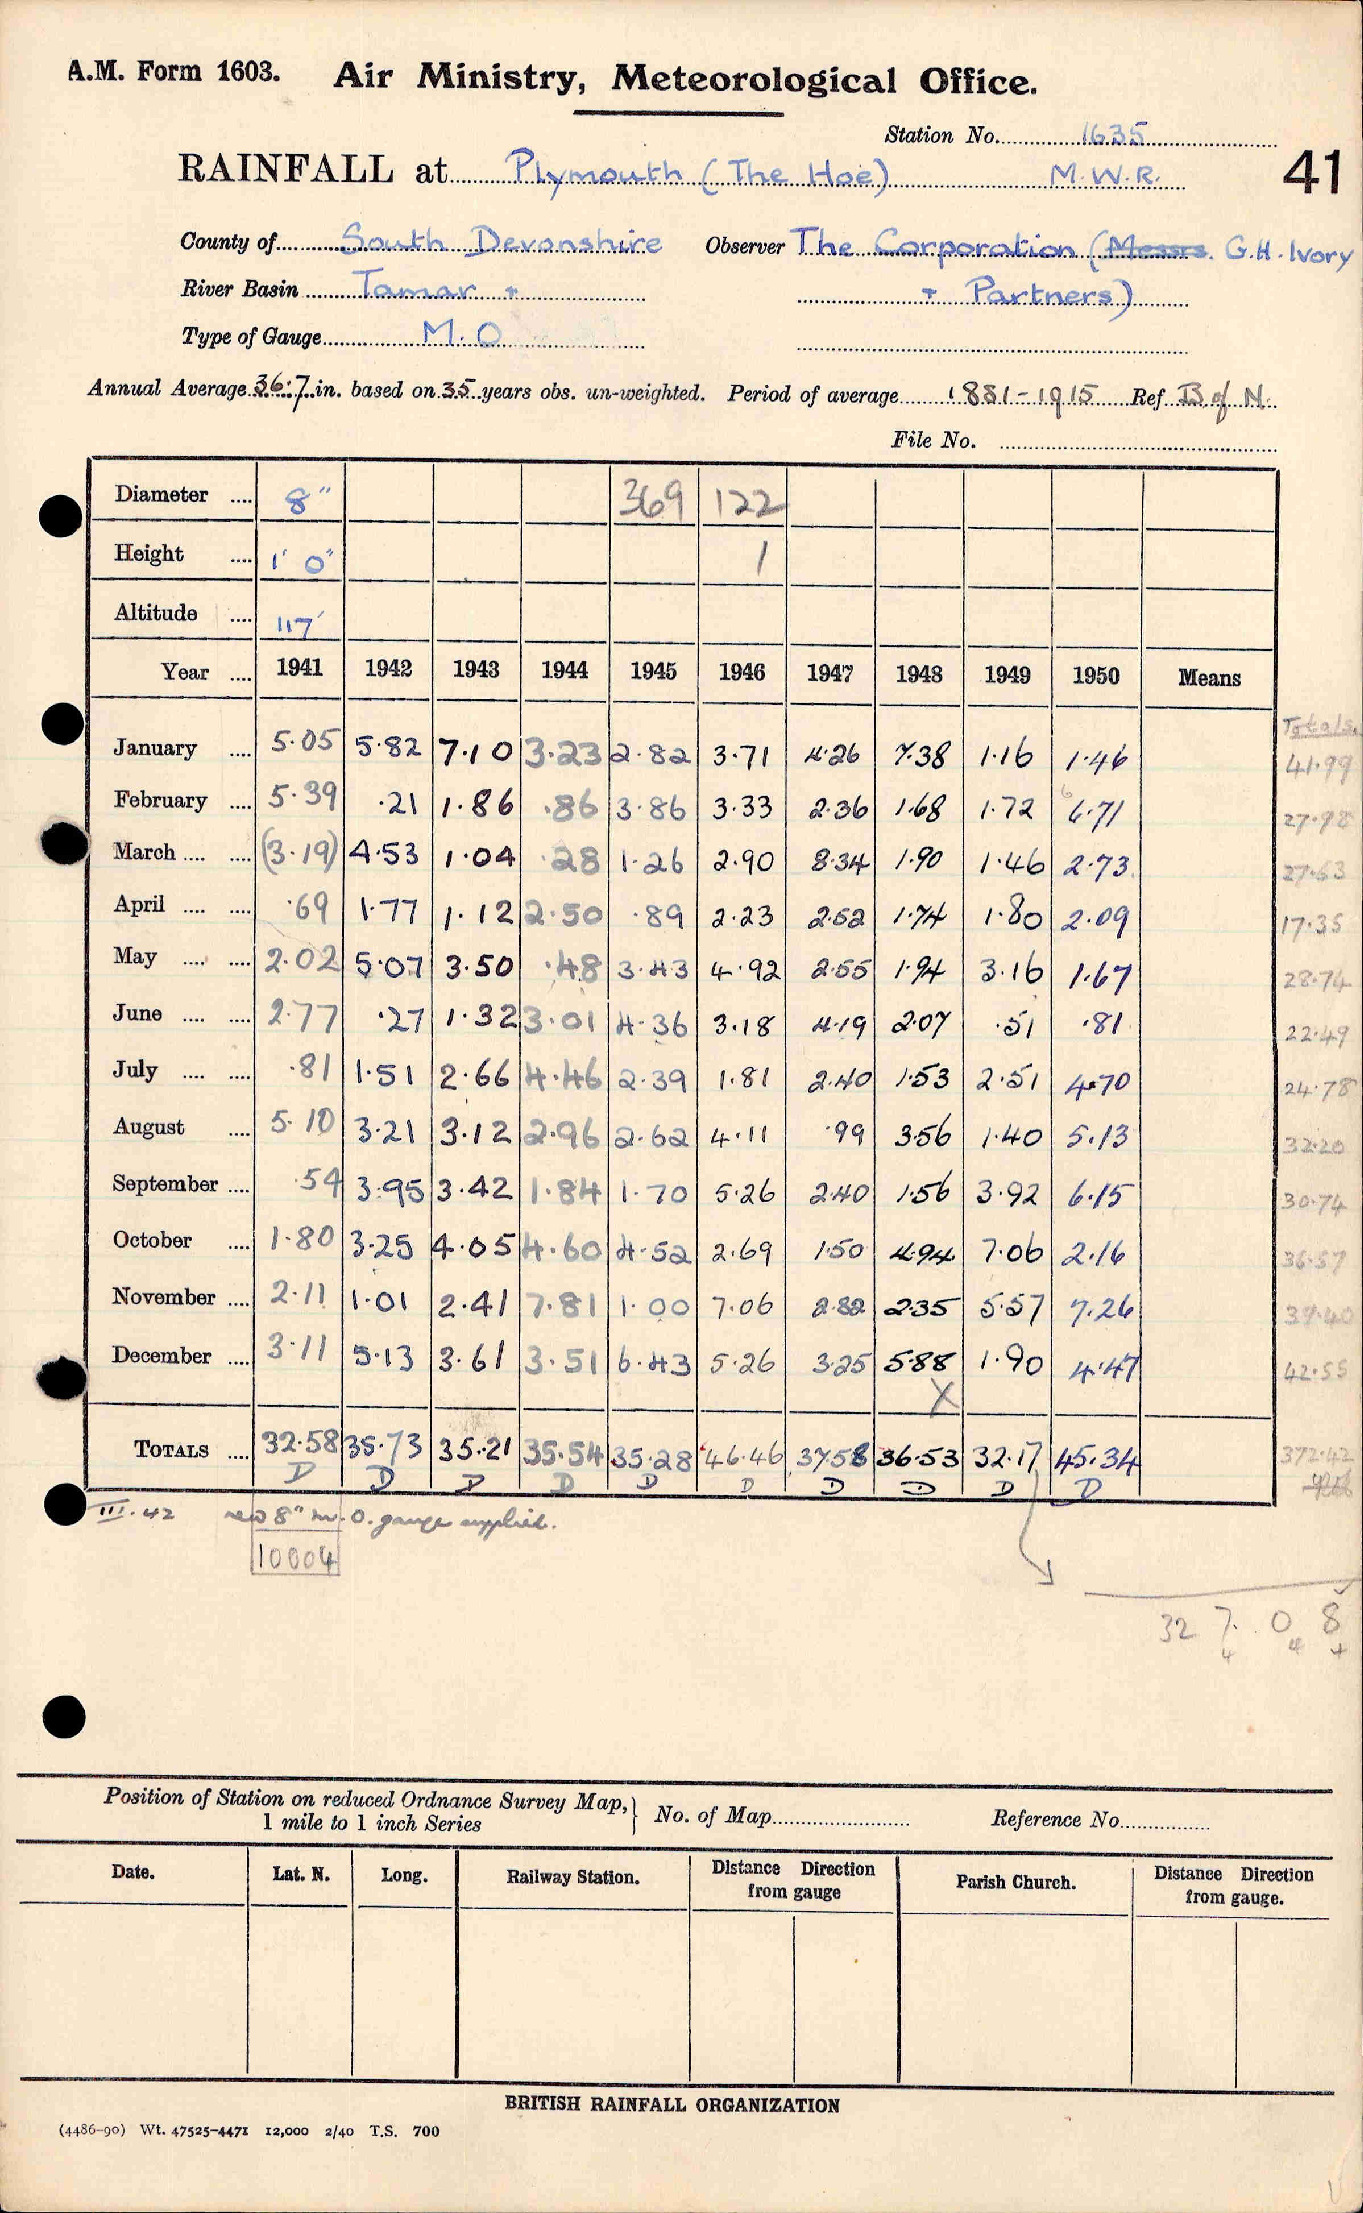 A.M. Form 1603. Air Ministry, Meteorological Office.
Station No. 1635
RAINFALL at Plymouth (The Hoe) M.W.R. 41
County of South Devonshire Observer The Corporation (Messrs. G.H. Ivory
River Basin Tamar + + Partners)
Type of Gauge M.O
Annual Average 36.7 in. based on 35 years obs. un-weighted. Period of average 1881-1915 Ref. B of N.
File No.
Diameter .... 8" 369 122
Height .... 1' 0" 1
Altitude .... 117'
Year .... 1941 1942 1943 1944 1945 1946 1947 1948 1949 1950 Means
Totals.
January .... 5.05 5.82 7.10 3.23 2.82 3.71 4.26 7.38 1.16 1.46 41.99
February .... 5.39 .21 1.86 .86 3.86 3.33 2.36 1.68 1.72 6.71 27.98
March .... .... (3.19) 4.53 1.04 .28 1.26 2.90 8.34 1.90 1.46 2.73 27.63
April .... .... .69 1.77 1.12 2.50 .89 2.23 2.52 1.74 1.80 2.09 17.35
May .... .... 2.02 5.07 3.50 .48 3.43 4.92 2.55 1.94 3.16 1.67 28.74
June .... .... 2.77 .27 1.32 3.01 4.36 3.18 4.19 2.07 .51 .81 22.49
July .... .... .81 1.51 2.66 4.46 2.39 1.81 2.40 1.53 2.51 4.70 24.78
August .... 5.10 3.21 3.12 2.96 2.62 4.11 .99 3.56 1.40 5.13 32.20
September .... .54 3.95 3.42 1.84 1.70 5.26 2.40 1.56 3.92 6.15 30.74
October .... 1.80 3.25 4.05 4.60 4.52 2.69 1.50 4.94 7.06 2.16 36.57
November .... 2.11 1.01 2.41 7.81 1.00 7.06 2.82 2.35 5.57 7.26 39.40
December .... 3.11 5.13 3.61 3.51 6.43 5.26 3.25 5.88 1.90 4.47 42.55
X
TOTALS .... 32.58 35.73 35.21 35.54 35.28 46.46 37.58 36.53 32.17 45.34 372.42
D D D D D D D D D D
III.42 new 8" M.O. gauge supplied.
10004
32 7. 0 8
4 4 +
Position of Station on reduced Ordnance Survey Map,} No. of Map Reference No.
1 mile to 1 inch Series
Date. Lat. N. Long. Railway Station. Distance Direction from gauge Parish Church. Distance Direction from gauge.
BRITISH RAINFALL ORGANIZATION
(4486-90) Wt. 47525-4471 12,000 2/40 T.S. 700